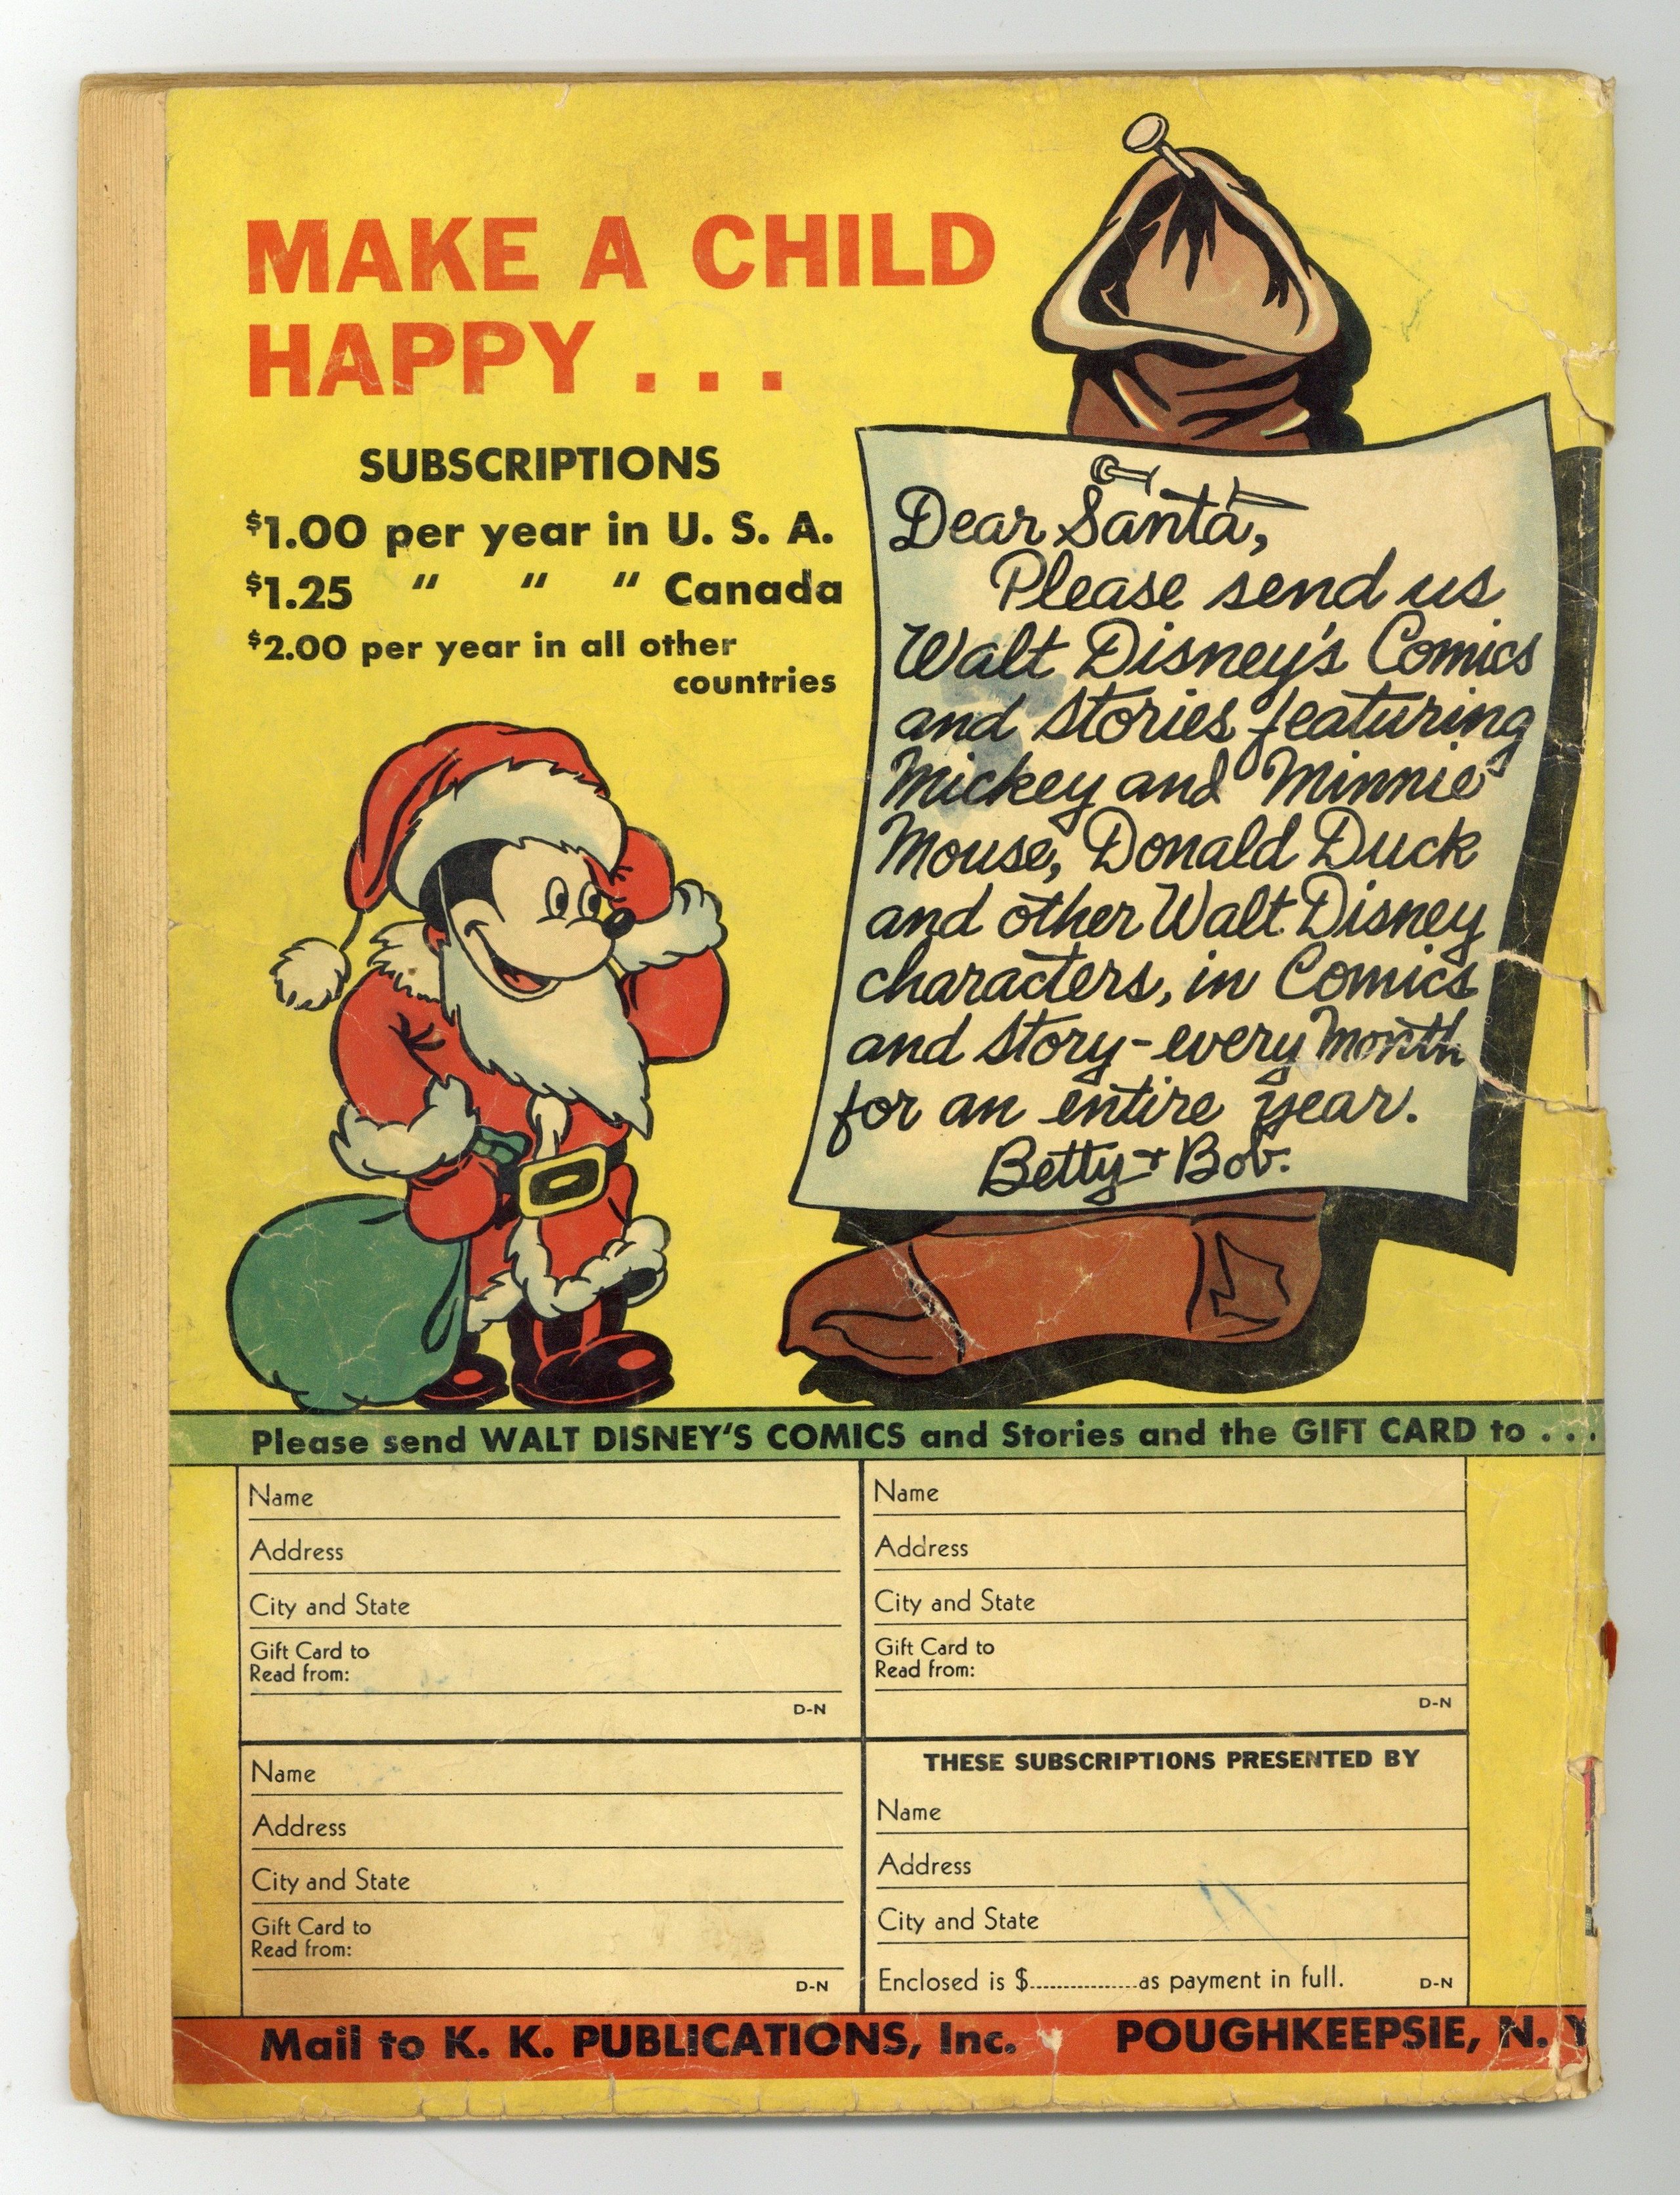 MAKE A CHILD
HAPPY...
SUBSCRIPTIONS
$1.00 per year in U. S. A.
$1.25 " " " Canada
$2.00 per year in all other
countries
Dear Santa,
Please send us
Walt Disney's Comics
and Stories featuring
Mickey and Minnie
Mouse, Donald Duck
and other Walt Disney
characters, in Comics
and story-every month
for an entire year.
Betty + Bob.
Please send WALT DISNEY'S COMICS and Stories and the GIFT CARD to . . .
Name
Address
City and State
Gift Card to
Read from:
D-N
Name
Address
City and State
Gift Card to
Read from:
D-N
Name
Address
City and State
Gift Card to
Read from:
D-N
THESE SUBSCRIPTIONS PRESENTED BY
Name
Address
City and State
Enclosed is $...............as payment in full.
D-N
Mail to K. K. PUBLICATIONS, Inc. POUGHKEEPSIE, N. Y